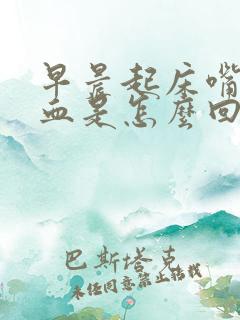 早晨起床嘴
血是怎么回
巴斯塔克
未经同意禁止转载